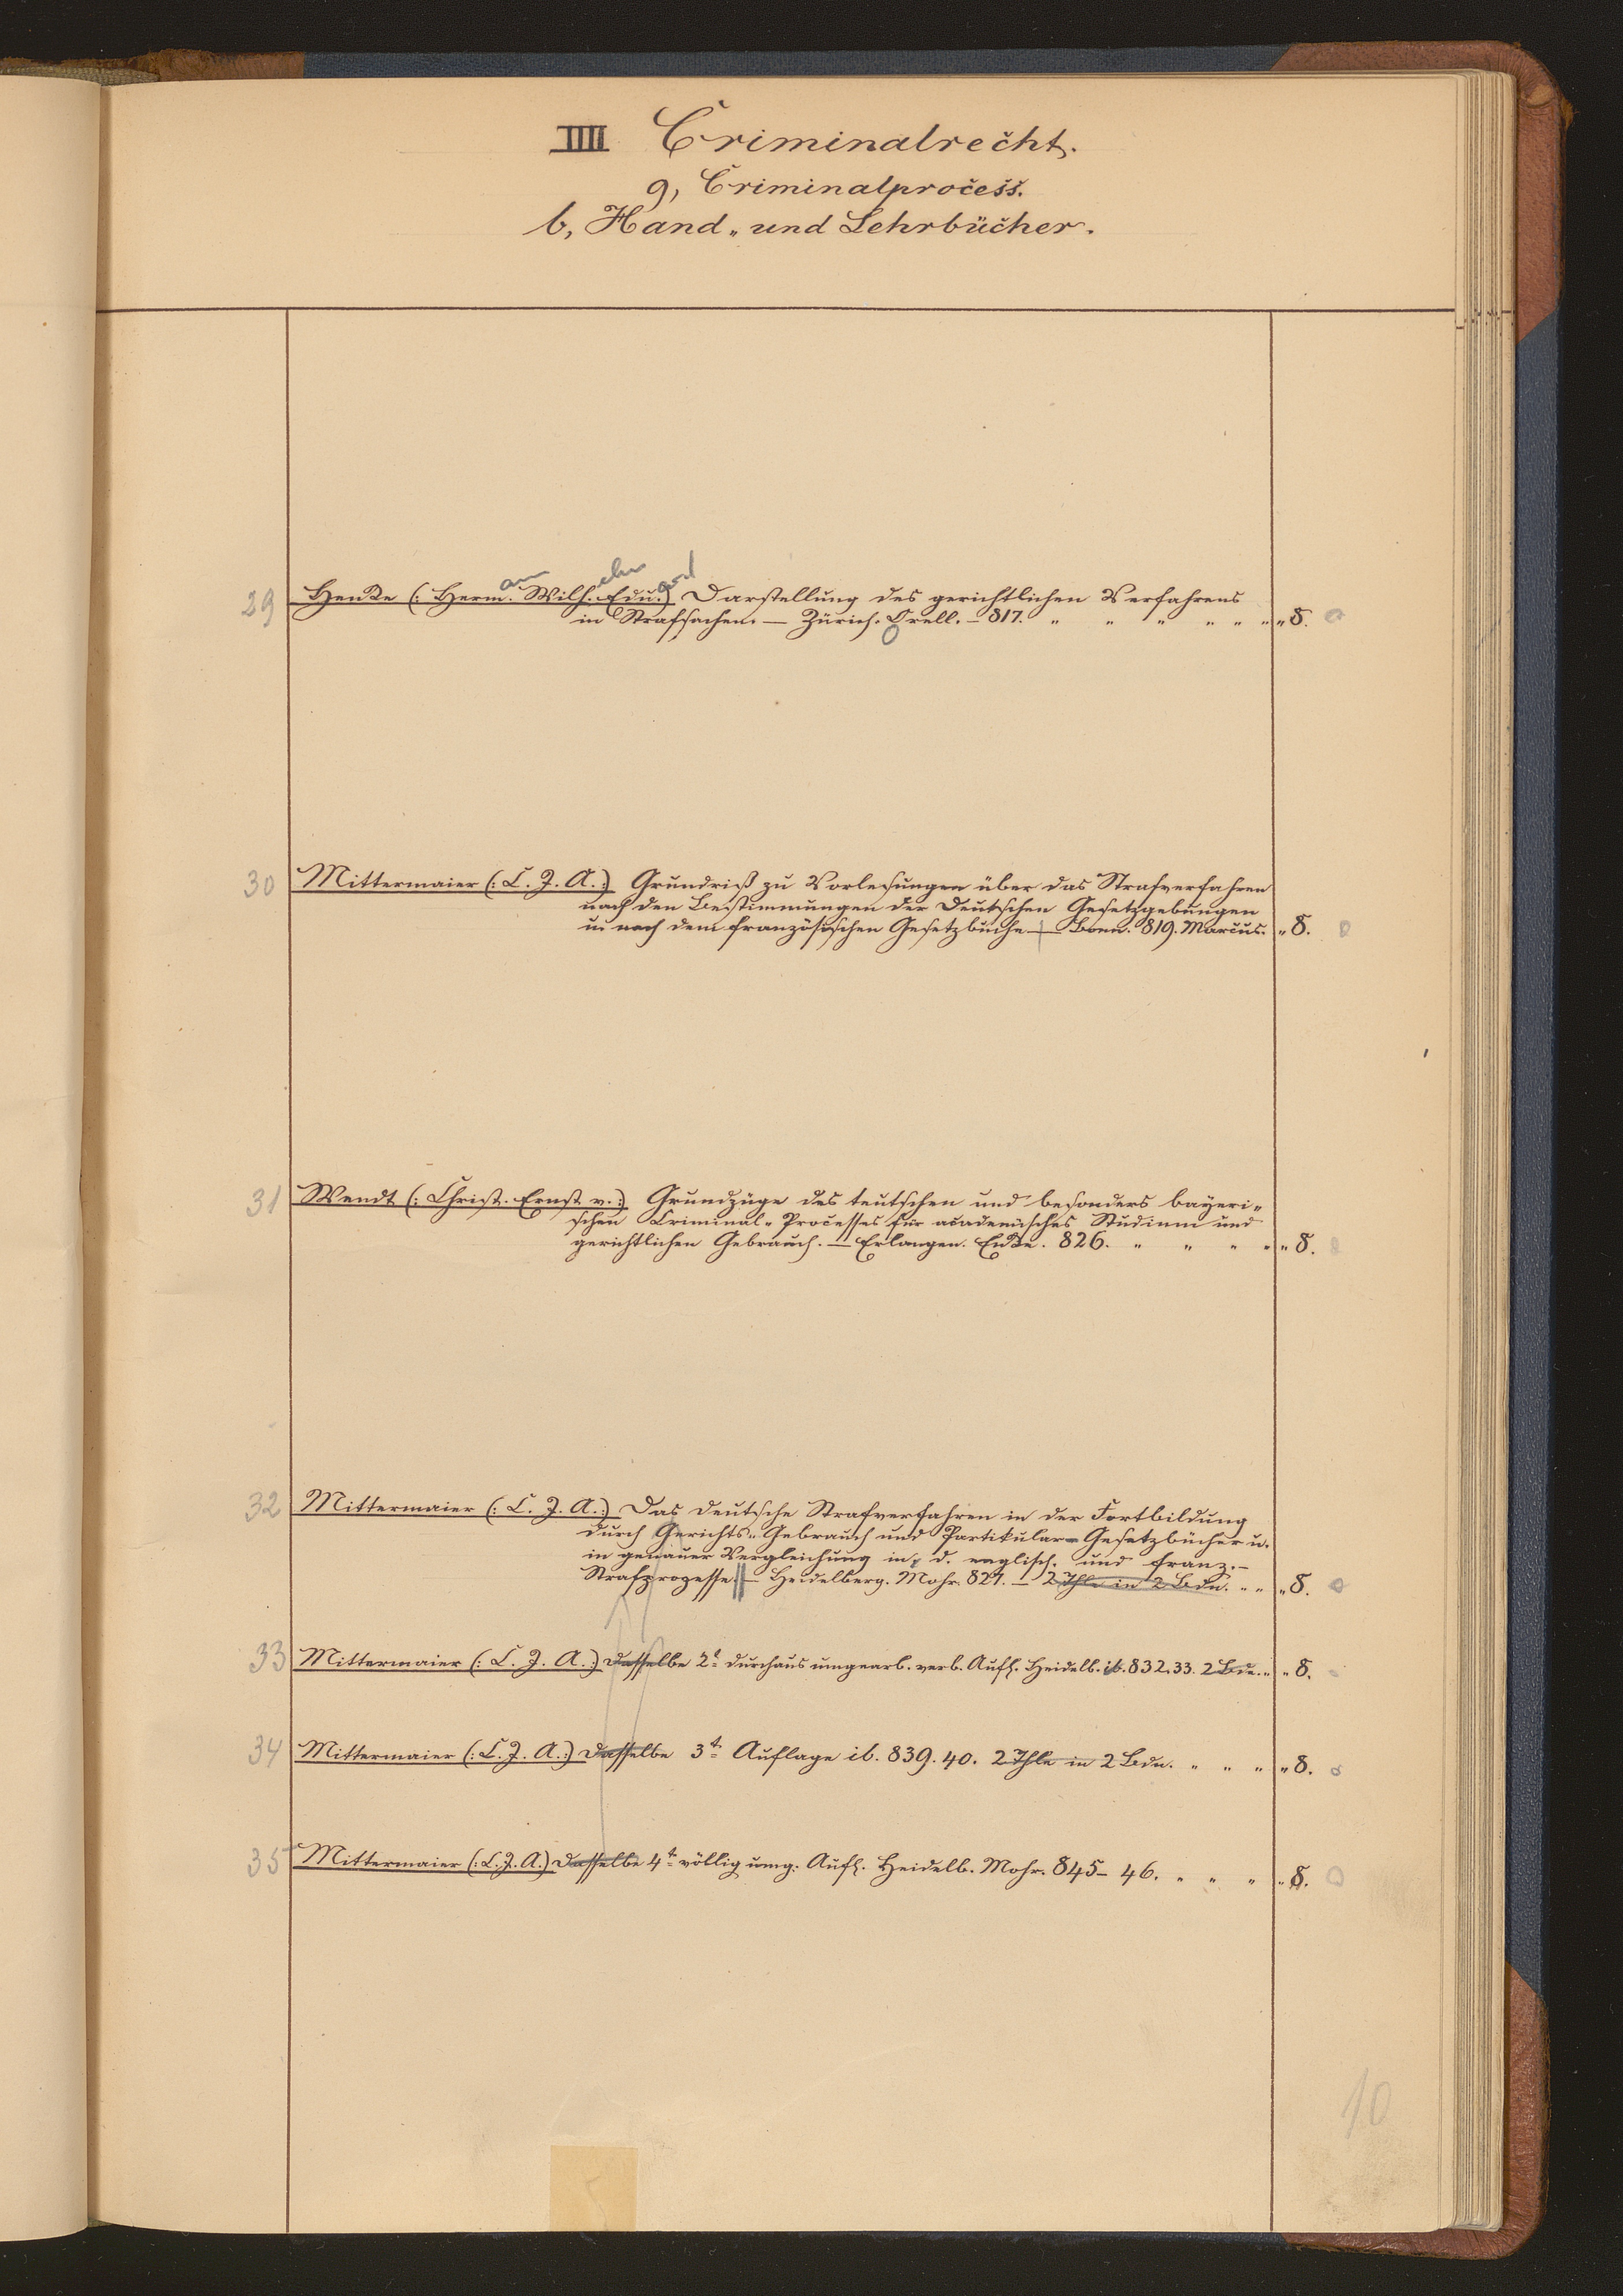 IIII Criminalrecht.
g, Criminalprocess.
b, Hand- und Lehrbücher.
ann elm ard
29 Henke (: Herm. Wilh. Edu. :) Darstellung des gerichtlichen Verfahrens
in Strafsachen. — Zürich. Orell. – 817. " " " " " " " 8.
30 Mittermaier (: C. J. A. :) Grundriß zu Vorlesungen über das Strafverfahren
nach den Bestimmungen der deutschen Gesetzgebungen
u. nach dem französischen Gesetzbuche — Bonn. 819. Marcus. " 8.
31 Wendt (: Christ. Ernst v. :) Grundzüge des teutschen und besonders bayeri-
schen Criminal-Processes für academisches Studium und
gerichtlichen Gebrauch. — Erlangen. Enke. 826. " " " " " 8.
32 Mittermaier (: C. J. A. :) Das deutsche Strafverfahren in der Fortbildung
durch Gerichts-Gebrauch und Partikular-Gesetzbücher u.
in genauer Vergleichung m. d. englisch. und franz. –
Strafprozesse — Heidelberg. Mohr. 827. — 2 Thle in 2 Bdn. " " " 8.
33 Mittermaier (: C. J. A. :) Dasselbe 2t durchaus umgearb. verb. Aufl. Heidelb. ib. 832. 33. 2 Bde. " " 8.
34 Mittermaier (: C. J. A. :) Dasselbe 3t Auflage ib. 839. 40. 2 Thle in 2 Bdn. " " " " 8.
35 Mittermaier (: C. J. A. :) Dasselbe 4t völlig umg. Aufl. Heidelb. Mohr. 845–46. " " " " 8.
10